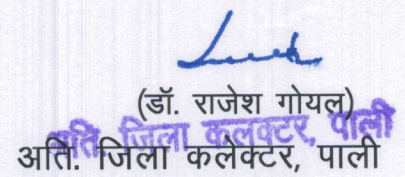 (डॉ. राजेश गोयल)
अति. जिला कलक्टर, पाली
अति. जिला कलेक्टर, पाली